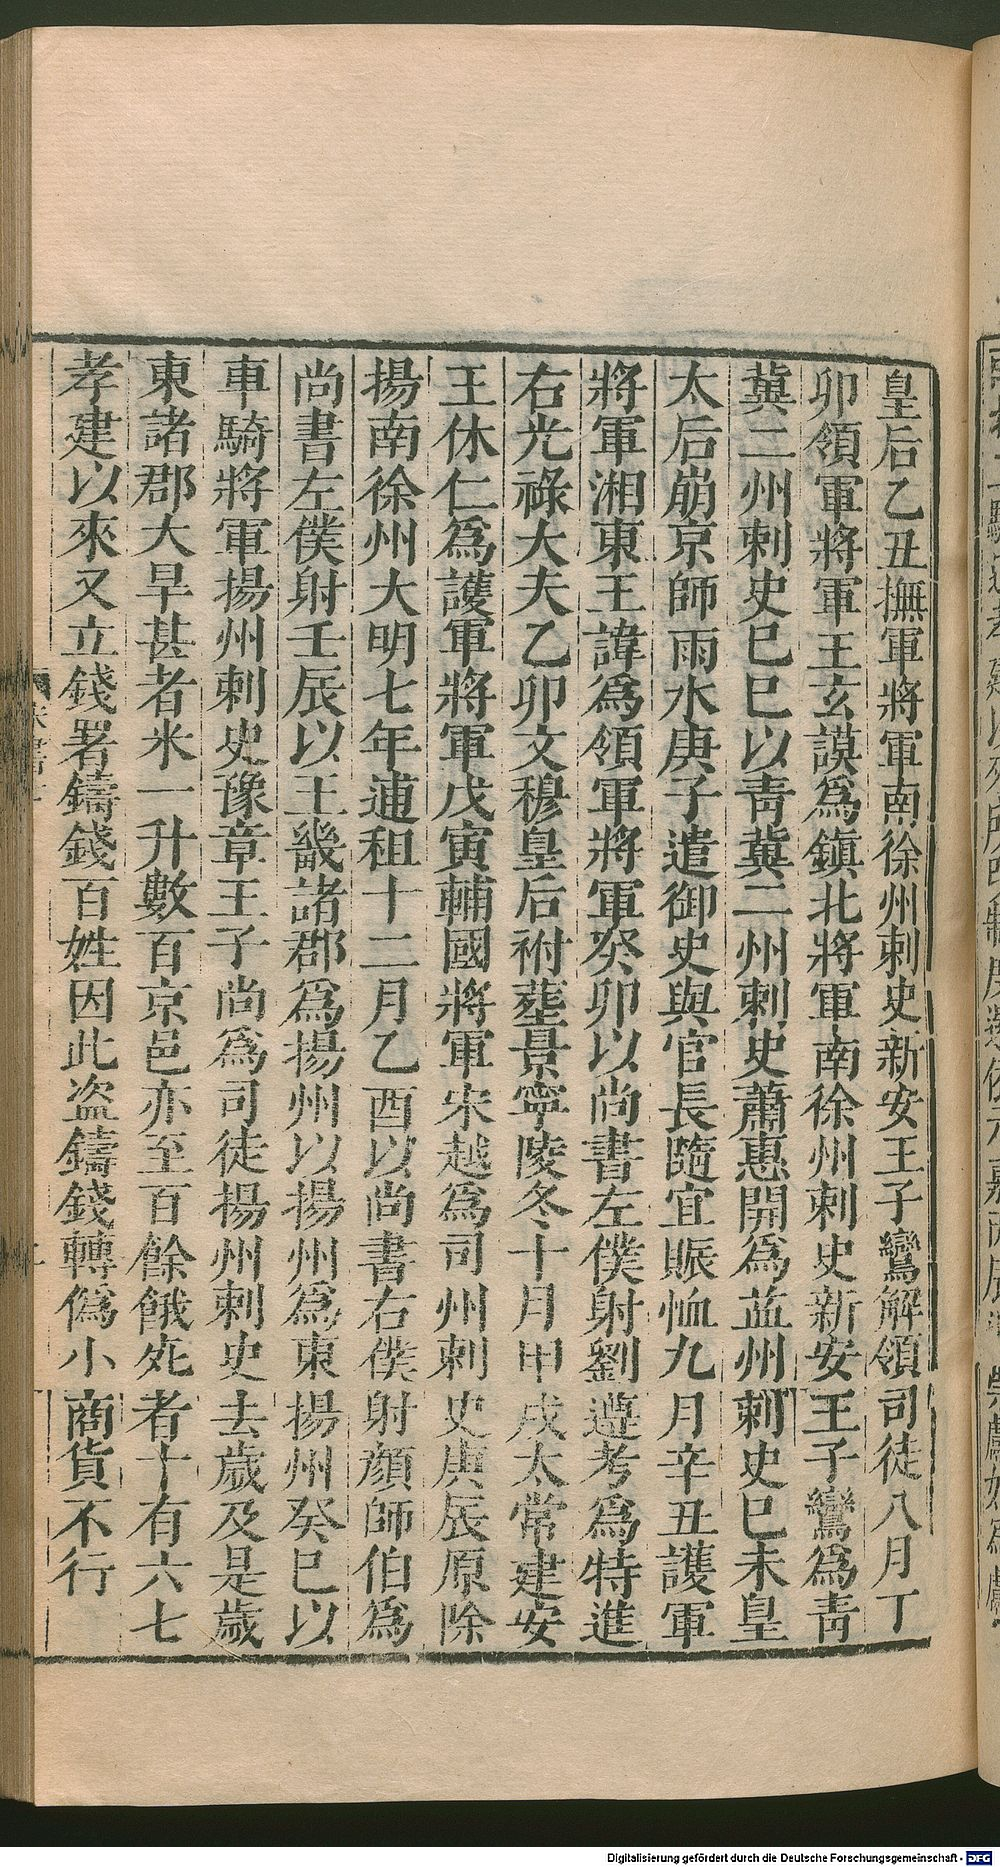 皇后乙丑撫軍將軍南徐州刺史新安王子鸞解領司徒八月丁
卯領軍將軍王玄謨爲鎮北將軍南徐州刺史新安王子鸞爲青
冀二州刺史己巳以青冀二州刺史蕭惠開爲益州刺史己未皇
太后崩京師雨水庚子遣御史與官長隨宜賑恤九月辛丑護軍
將軍湘東王諱爲領軍將軍癸卯以尚書左僕射劉遵考爲特進
右光祿大夫乙卯文穆皇后祔葬景寧陵冬十月甲戌太常建安
王休仁爲護軍將軍戊寅輔國將軍宋越爲司州刺史庚辰原除
揚南徐州大明七年逋租十二月乙酉以尚書右僕射顏師伯爲
尚書左僕射壬辰以王畿諸郡爲揚州以揚州爲東揚州癸巳以
車騎將軍揚州刺史豫章王子尚爲司徒揚州刺史去歲及是歲
東諸郡大旱甚者米一升數百京邑亦至百餘餓死者十有六七
孝建以來又立錢署鑄錢百姓因此盜鑄錢轉僞小商貨不行
Digitalisierung gefördert durch die Deutsche Forschungsgemeinschaft - DFG